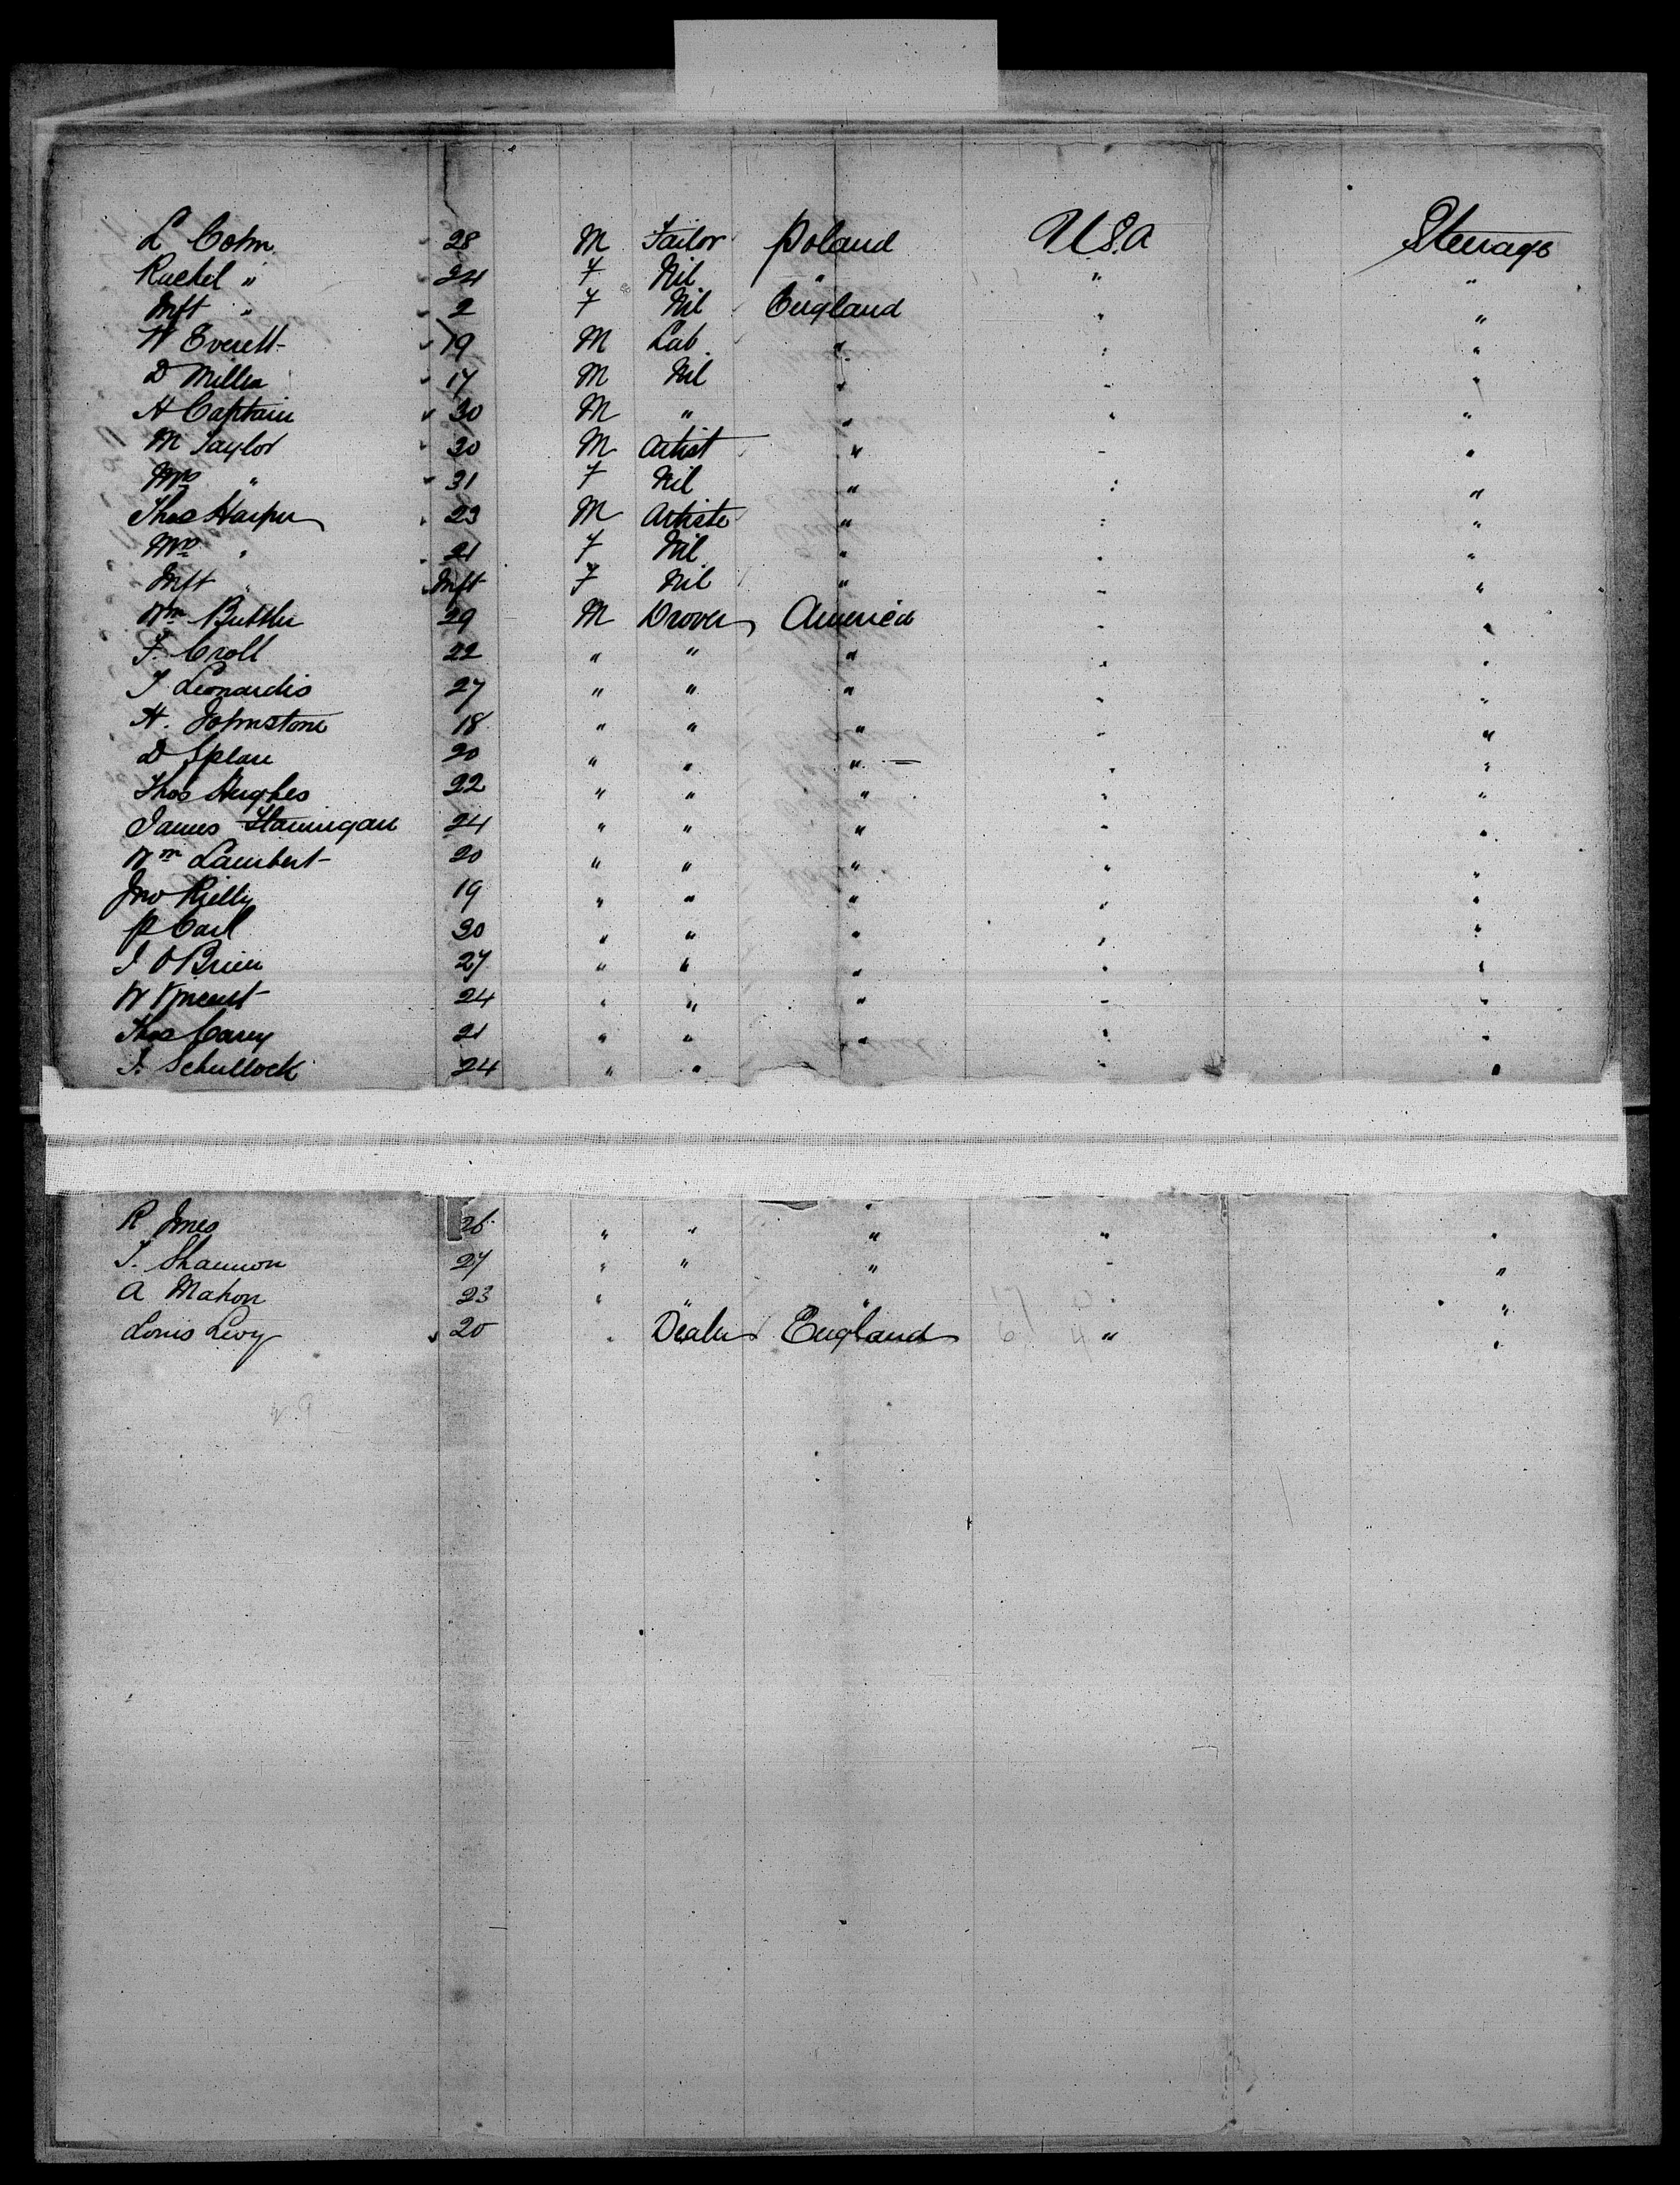 L Cohn 28 M Tailor Poland U.S.A Steerage
Rachel " 24 F Nil " " "
Inft " 2 F Nil England " "
W Everett 19 M Lab " " "
D Miller 17 M Nil " " "
H Captain 30 M " " " "
M Taylor 30 M Artist " " "
Mrs " 31 F Nil " " "
Thos Harper 23 M Artiste " " "
Mrs " 21 F Nil " " "
Inft " Inft F Nil " " "
Wm Buttler 29 M Drover America " "
F. Croll 22 " " " " "
J Leonardis 27 " " " " "
H. Johnstone 18 " " " " "
D Splan 20 " " " " "
Thos Hughes 22 " " " " "
James Hannigan 24 " " " " "
Wm Lambert 20 " " " " "
Jno Rielly 19 " " " " "
P Carl 30 " " " " "
J O'Brien 27 " " " " "
W Vincent 24 " " " " "
Thos Carey 21 " " " " "
J. Schullock 24 " " " " "
R Jones 26 " " " " "
J. Shannon 27 " " " " "
A Mahon 23 " " " " "
Louis Levy 20 " Dealer England " "